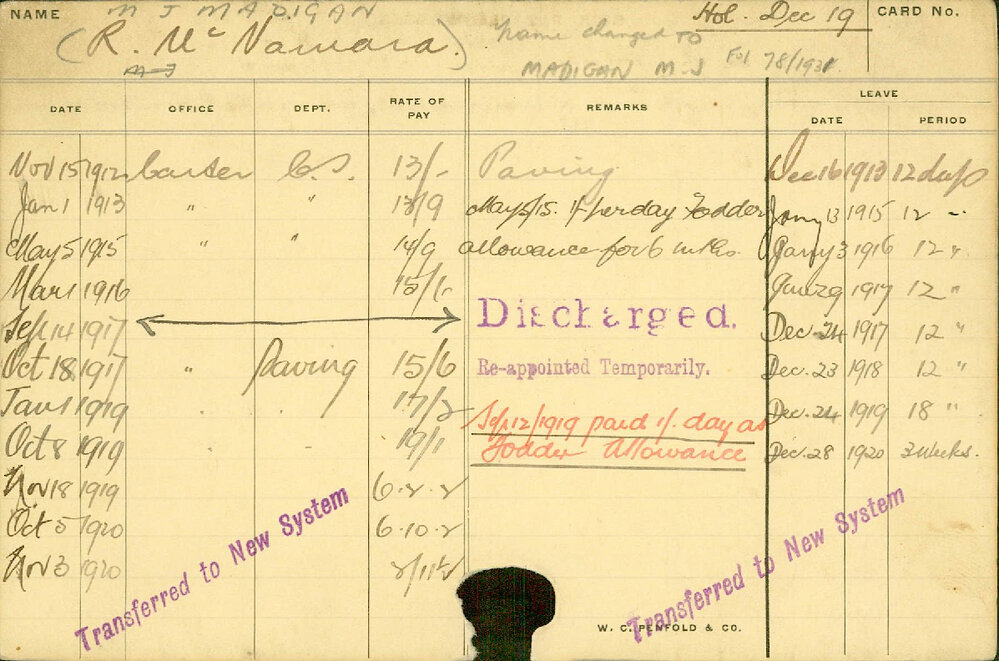 NAME M J MADIGAN Hol. Dec 19 CARD No.
(R. McNamara.) Name changed to
M J MADIGAN M-J Fol 78/1931
DATE OFFICE DEPT. RATE OF PAY REMARKS LEAVE
DATE PERIOD
Nov 15 1912 Carter C.S. 13/- Paving Dec 16 1913 12 days
Jan 1 1913 " " 13/9 May 5/15. 1/- per day Fodder Jany 13 1915 12 "
May 5 1915 " " 14/9 allowance for 6 mths. Jany 3 1916 12 "
Mar 1 1916 15/6 Jan 29 1917 12 "
Sep 14 1917 Discharged. Dec. 24 1917 12 "
Oct 18 1917 " Paving 15/6 Re-appointed Temporarily. Dec. 23 1918 12 "
Jan 1 1919 17/2 Sep 12/1919 paid 1/- day as Dec. 24 1919 18 "
Oct 8 1919 19/1 Fodder Allowance Dec. 28 1920 3 weeks.
Nov 18 1919 6-2-2
Oct 5 1920 6-10-2
Nov 3 1920 2/11½
Transferred to New System
Transferred to New System
W. C. PENFOLD & CO.